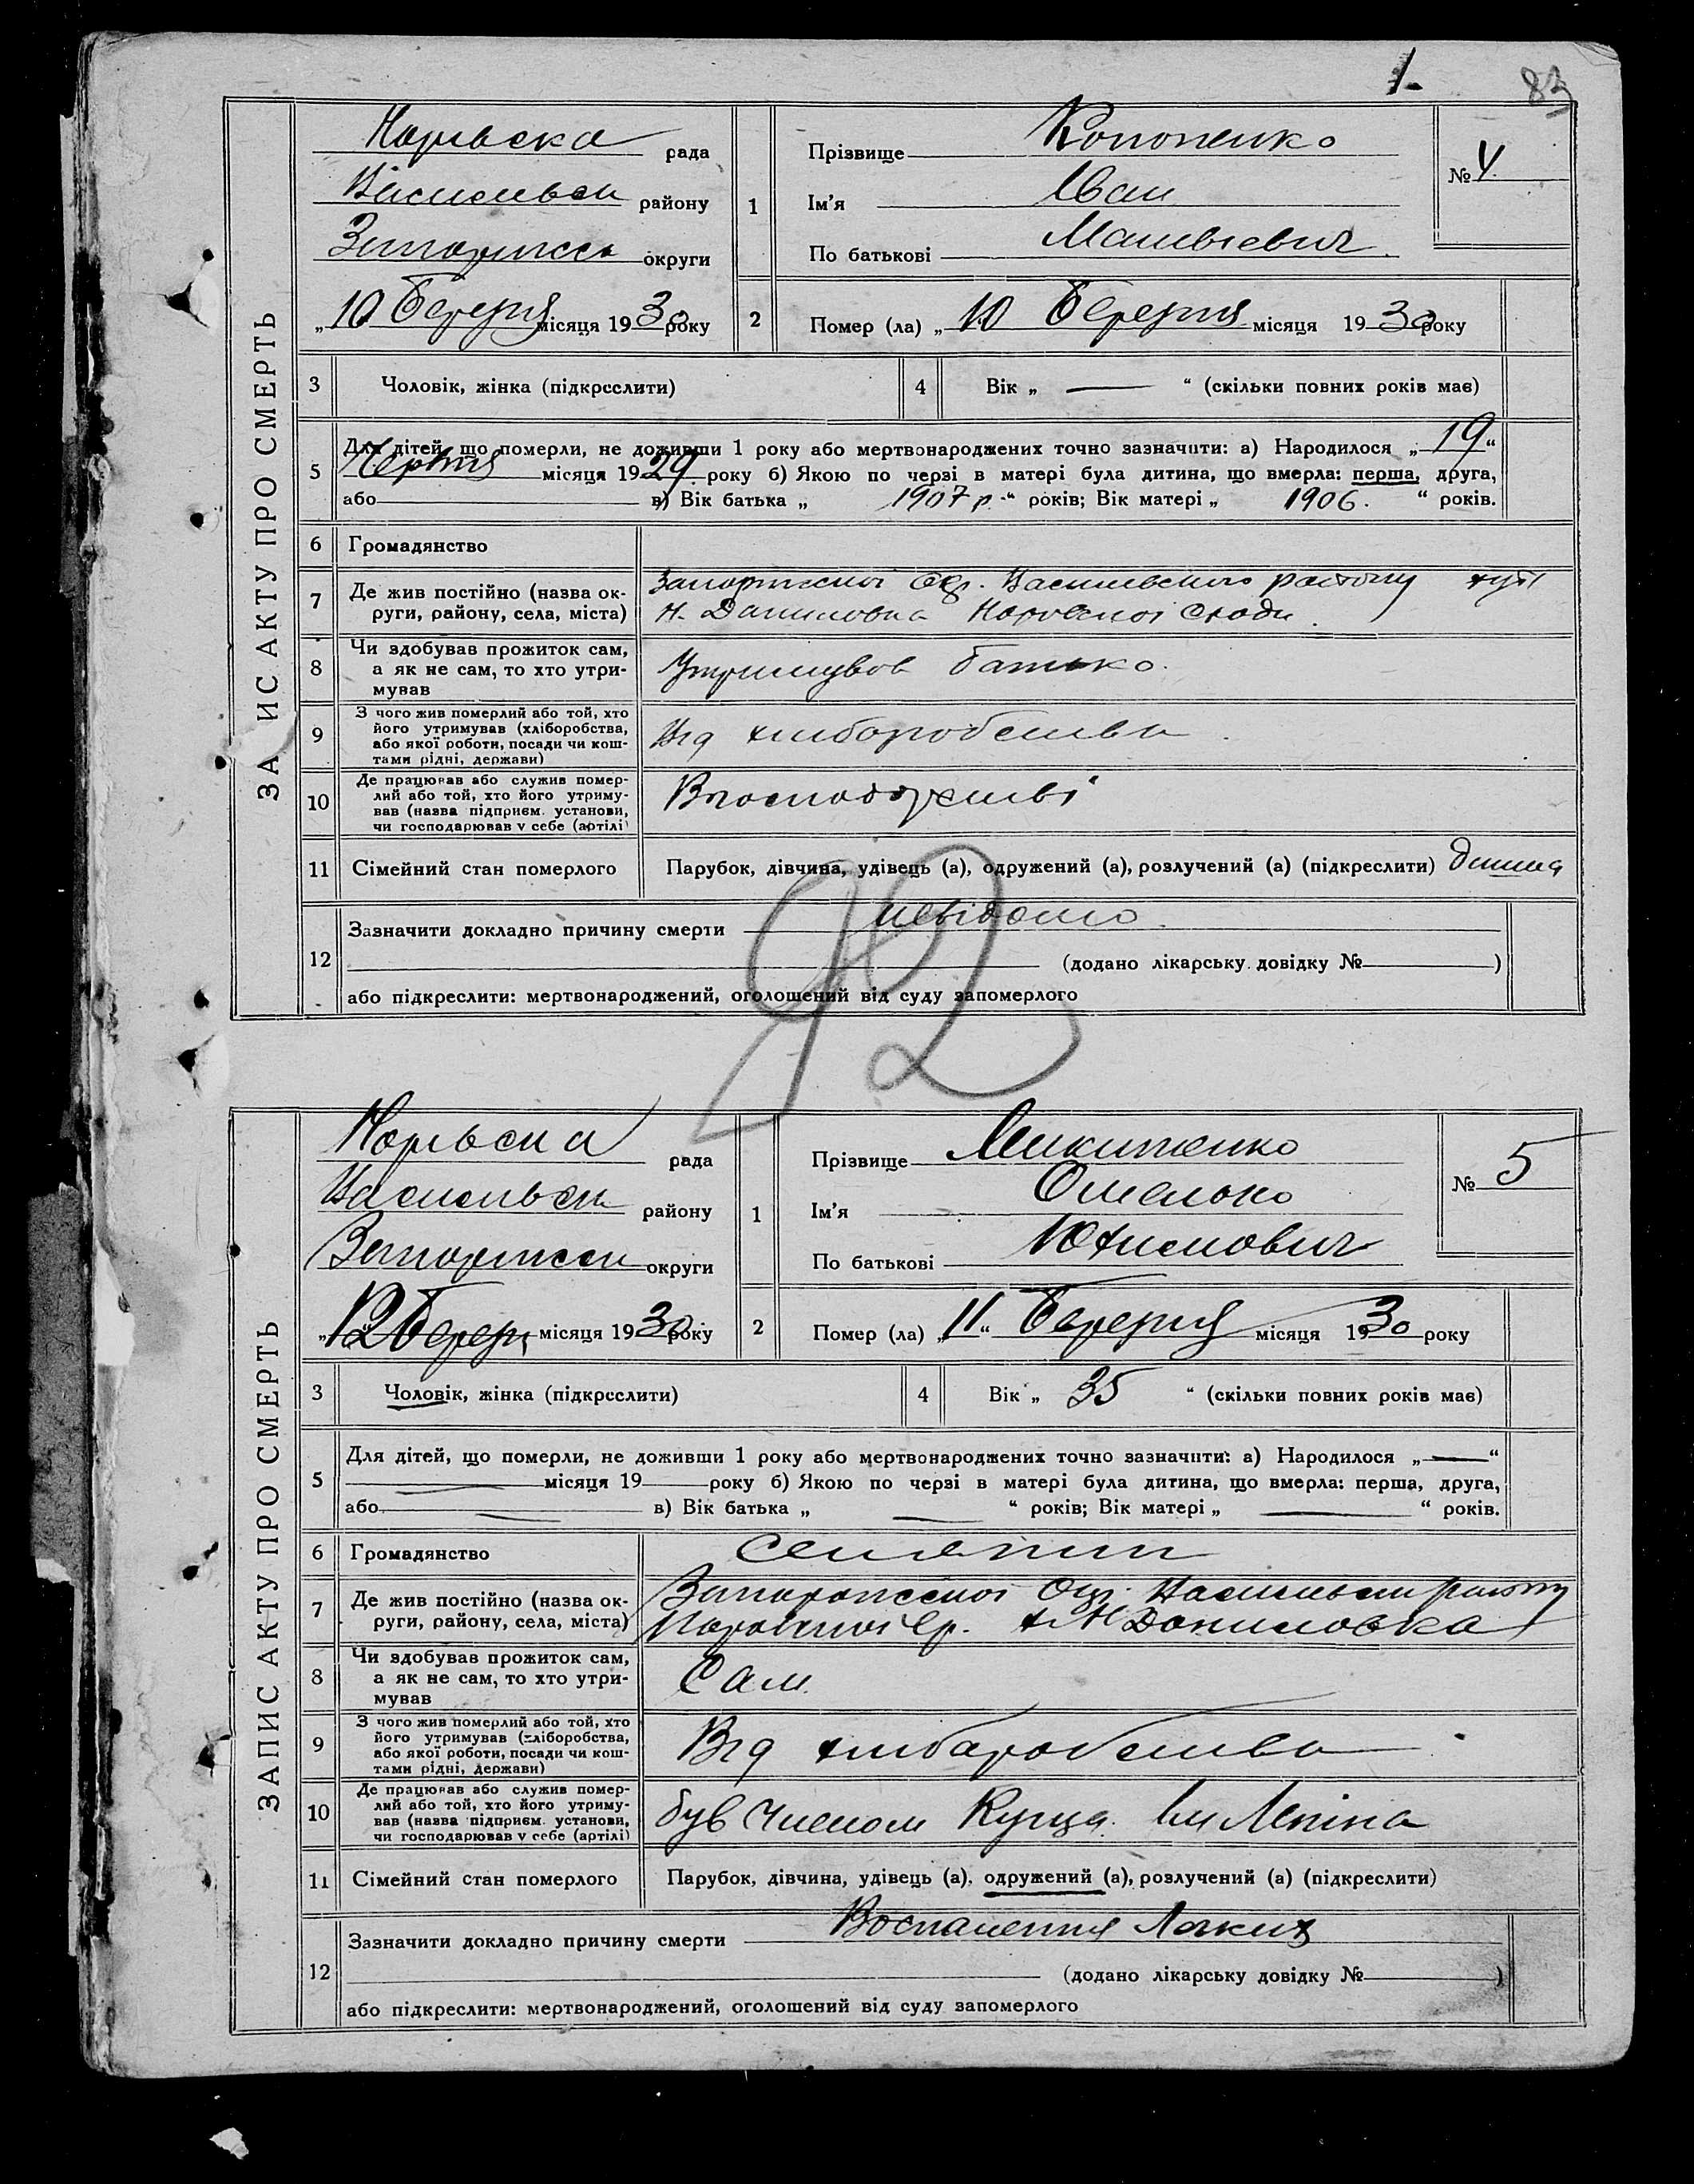 1.
83
ЗАПИС АКТУ ПРО СМЕРТЬ
рада
Васильвськ району
Запоріжськ округи
„10 Березня місяця 1930 року
1
Прізвище Кононенко
Ім'я Іван
По батькові Матвієвич
№ 4.
2
Помер (ла) „10 Березня місяця 1930 року
3 Чоловік, жінка (підкреслити)
4 Вік „ — “ (скільки повних років має)
5 Для дітей, що померли, не доживши 1 року або мертвонароджених точно зазначити: а) Народилося „19“
Червня місяця 1929 року б) Якою по черзі в матері була дитина, що вмерла: перша, друга,
або в) Вік батька „ 1907 р. “ років; Вік матері „ 1906. “ років.
6 Громадянство
7 Де жив постійно (назва ок-
руги, району, села, міста)
Запоріжської Окр. Василівського району хут
Н. Даниловка
8 Чи здобував прожиток сам,
а як не сам, то хто утри-
мував
Утримував батько.
9 З чого жив померлий або той, хто
його утримував (хліборобства,
або якої роботи, посади чи кош-
тами рідні, держави)
Від хліборобства.
10 Де працював або служив помер-
лий або той, хто його утриму-
вав (назва підприєм. установи,
чи господарював у себе (артілі)
В господарстві
11 Сімейний стан померлого
Парубок, дівчина, удівець (а), одружений (а), розлучений (а) (підкреслити) дитина
12 Зазначити докладно причину смерти невідомо.
(додано лікарську довідку № )
або підкреслити: мертвонароджений, оголошений від суду запомерлого
92
ЗАПИС АКТУ ПРО СМЕРТЬ
рада
Васильвськ району
Запоріжськ округи
„12 Берез місяця 1930 року
1
Прізвище Микитенко
Ім'я Омелько
По батькові Юхимович
№ 5
2
Помер (ла) „11“ Березня місяця 1930 року
3 Чоловік, жінка (підкреслити)
4 Вік „ 35 “ (скільки повних років має)
5 Для дітей, що померли, не доживши 1 року або мертвонароджених точно зазначити: а) Народилося „—“
— місяця 19 року б) Якою по черзі в матері була дитина, що вмерла: перша, друга,
або — в) Вік батька „ — “ років; Вік матері „ — “ років.
6 Громадянство
селянин
7 Де жив постійно (назва ок-
руги, району, села, міста)
Запоріжської Окр. Васильвськ району
х. Н Даниловка
8 Чи здобував прожиток сам,
а як не сам, то хто утри-
мував
Сам
9 З чого жив померлий або той, хто
його утримував (хліборобства,
або якої роботи, посади чи кош-
тами рідні, держави)
Від хліборобства.
10 Де працював або служив помер-
лий або той, хто його утриму-
вав (назва підприєм. установи,
чи господарював у себе (артілі)
був членом Ім Леніна
11 Сімейний стан померлого
Парубок, дівчина, удівець (а), одружений (а), розлучений (а) (підкреслити)
12 Зазначити докладно причину смерти Воспалення Лёгких
(додано лікарську довідку № )
або підкреслити: мертвонароджений, оголошений від суду запомерлого